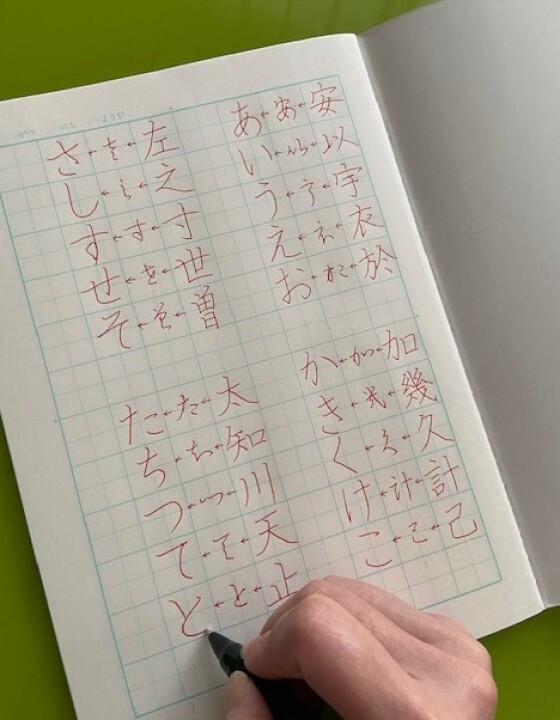 がつ にち ようび
あ←あ←安
い←い←以
う←う←宇
え←え←衣
お←お←於
か←か←加
き←き←幾
く←く←久
け←け←計
こ←こ←己
さ←さ←左
し←し←之
す←す←寸
せ←せ←世
そ←そ←曽
た←た←太
ち←ち←知
つ←つ←川
て←て←天
と←と←止